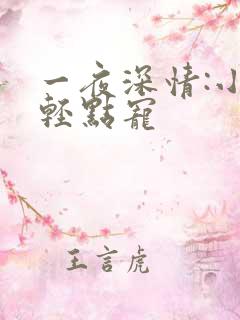 一夜深情:小
輕點寵
王言虎